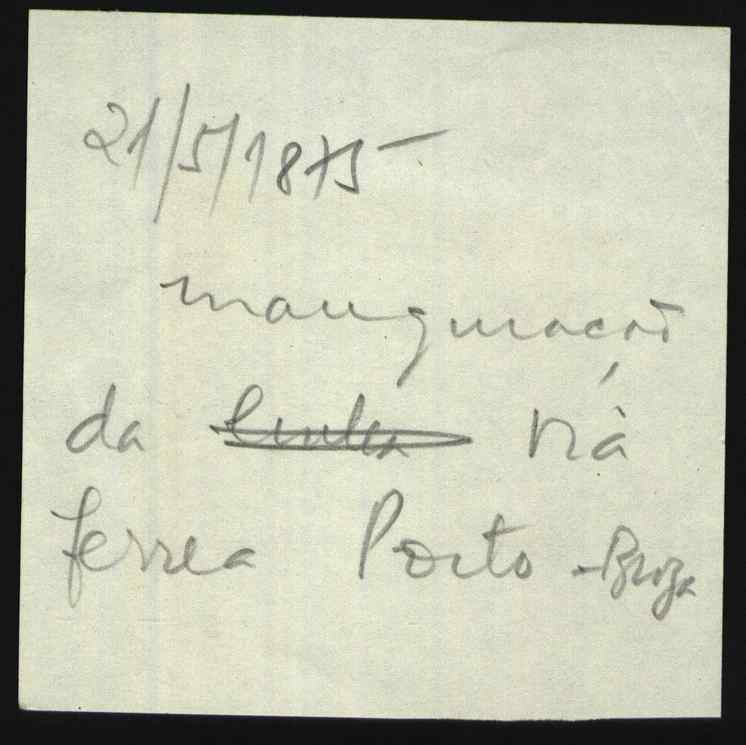 21/5/1875 -
inauguração
da linha via
ferrea Porto - Braga